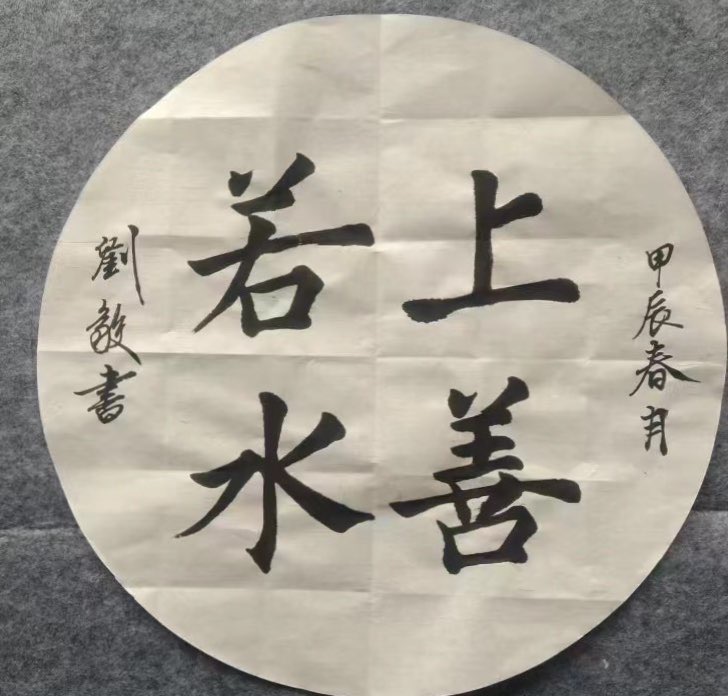 甲辰春月
上善
若水
劉敬書